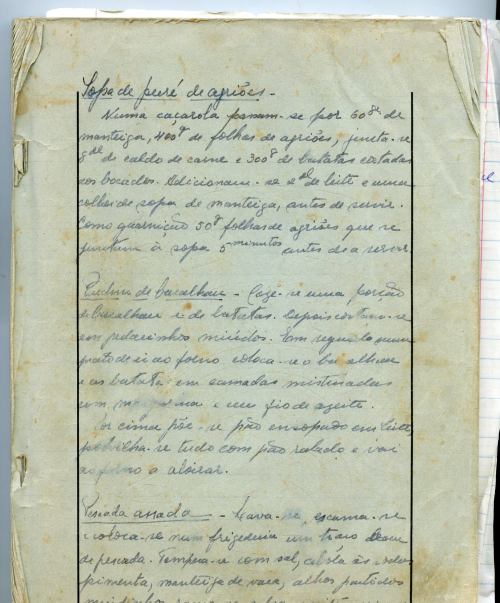 Sopa de puré de agriões -
Numa caçarola passam-se por 60gr de
manteiga, 400gr de folhas de agriões, junta-se
de caldo de carne e 300gr de batatas cortadas
aos bocados. Adicionam-se 2 dl de leite e uma
colher de sopa de manteiga, antes de servir.
Como guarnição 50gr folhas de agriões que se
juntam à sopa 5 minutos antes de a servir.
Pudim de bacalhau - Coze-se uma porção
de bacalhau e de batatas. Depois cortam-se
em pedacinhos miúdos. Em seguida num
prato de ir ao forno coloca-se o bacalhau
e as batatas em camadas misturadas
com e um fio de azeite.
Por cima põe-se pão ensopado em leite,
polvilha-se tudo com pão ralado e vai
ao forno a aloirar.
Pescada assada - Lava-se, escama-se
e coloca-se num frigideira um
de pescada. Tempera-se com sal, cebola às rodas
pimenta, manteiga de vaca, alhos partidos